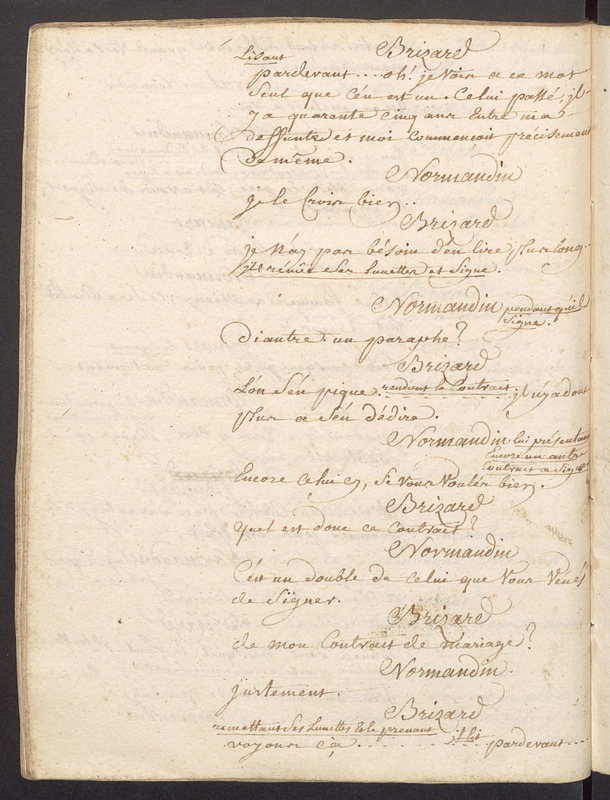 Brizard
Lisant
pardevant... oh! je vois a ce mot
seul que c'en est un. Celui passé, il
y a quarente cinq ans Entre ma
Deffunte et moi Commencoit précisement
De même.
Normandin
je le Crois bien..
Brizard
je n'ay pas bésoin d'en lire plus long.
il rémét ses lunettes et signe.
Normandin pendant qu'il
signe.
Diantre! un paraphe?
Brizard
L'on s'en pique rendant le Contrait. il n'y a dont
plus a s'en dédire.
Normandin lui présentant
Encore un autre
Contrait a signer
Encore celui cy, si vous voulés bien.
Brizard
quel est donc ce Contrait?
Normandin
C'est un double de celui que vous venés
de signer.
Brizard
de mon Contrait de mariage?
Normandin.
justement.
Brizard
remettant ses Lunettes Et le prenant
voyons ça........ il lit pardevant...